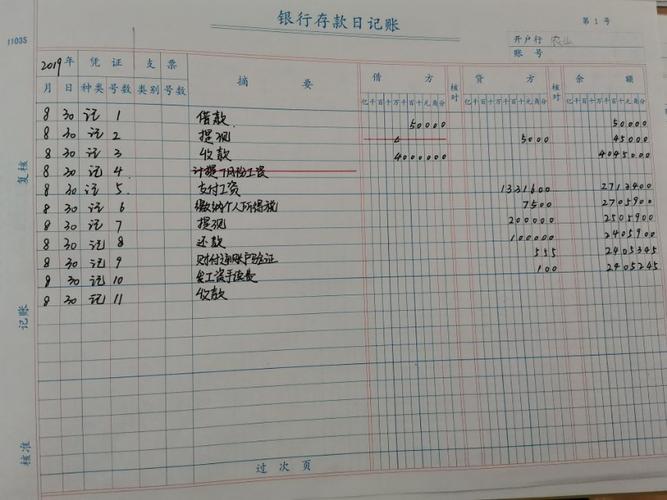 11035
银行存款日记账
第 1 号
开户行 农业
账 号
2019年 凭 证 支 票 摘 要 借 方 核对 贷 方 核对 余 额
月 日 种类 号数 类别 号数 亿千百十万千百十元角分 亿千百十万千百十元角分 亿千百十万千百十元角分
8 30 记 1 借款 50000 50000
8 30 记 2 提现 5000 45000
8 30 记 3 收款 4000000 4045000
8 30 记 4 计提 工资
8 30 记 5 支付工资 1331600 2713400
8 30 记 6 缴纳个人所得税 7500 2705900
8 30 记 7 提现 200000 2505900
8 30 记 8 还款 100000 2405900
8 30 记 9 555 2405345
8 30 记 10 发工资手续费 100 2405245
8 30 记 11 收款
过 次 页
复核
记账
核准